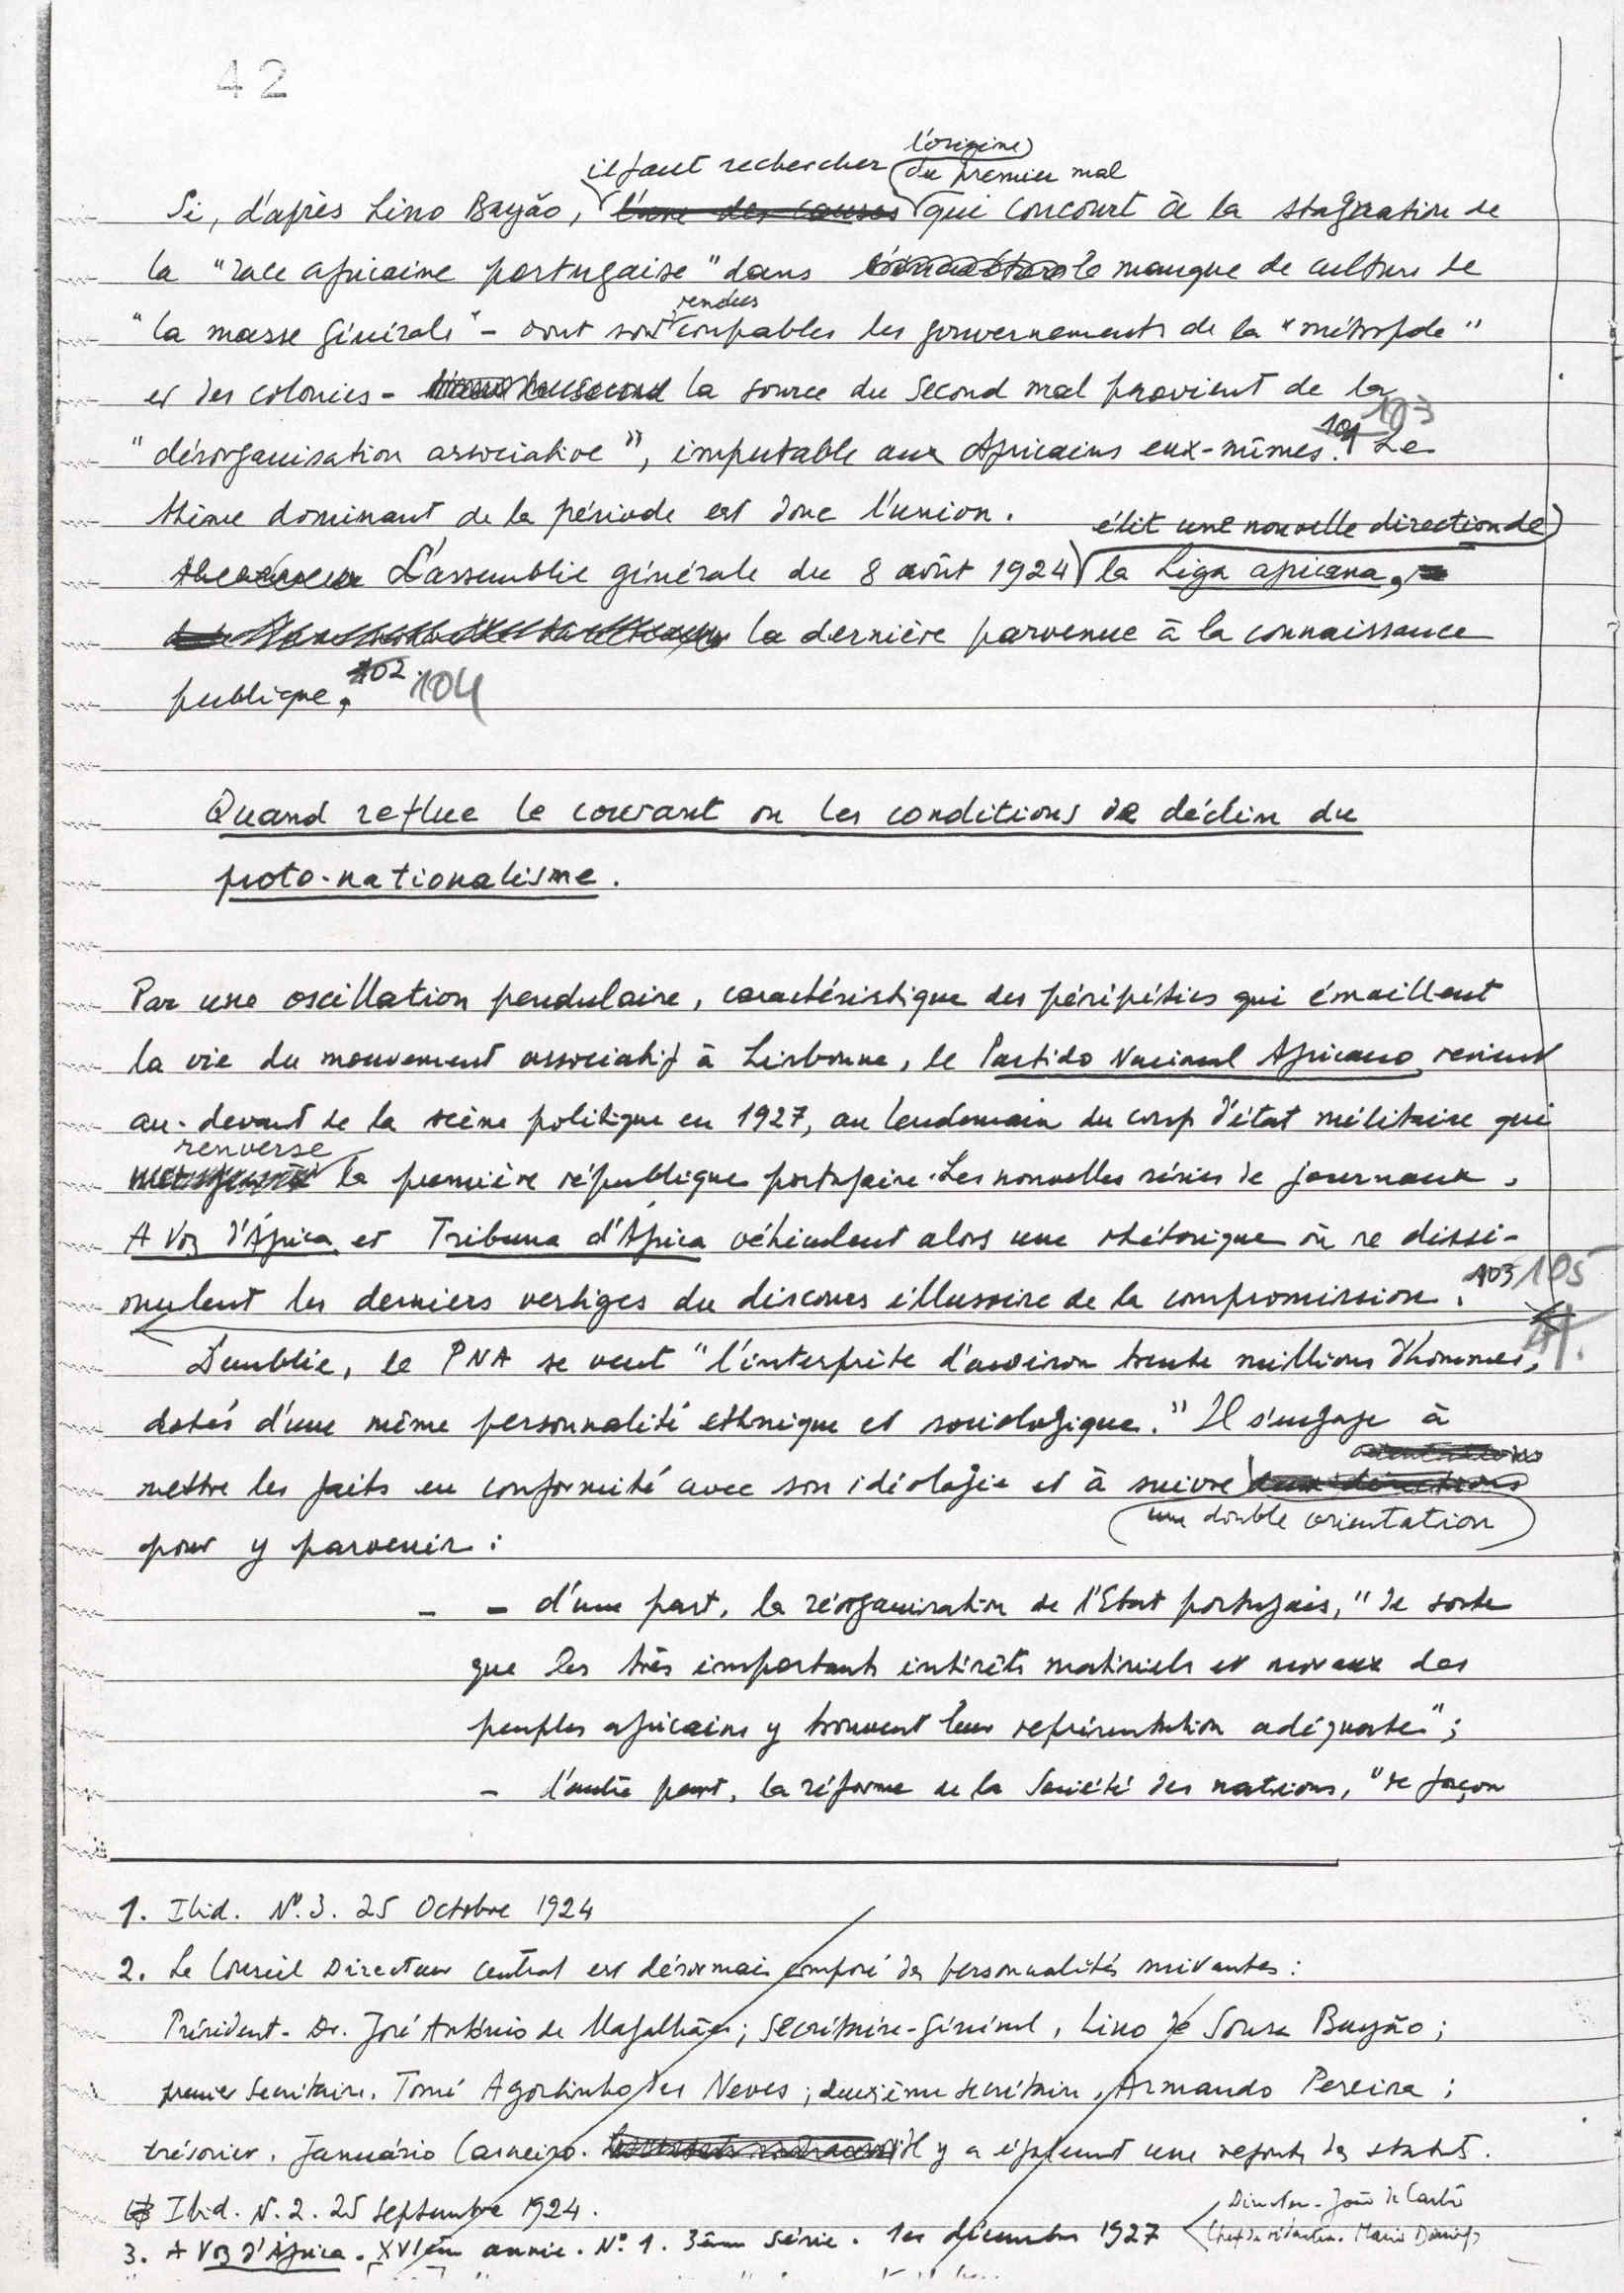 42
l'origine
il faut rechercher du premier mal
Si, d'après Lino Bayão, l'une des causes qui concourt à la stagnation de
la "race africaine portugaise" dans le manque de culture de
rendus
"la masse générale" - dont sont coupables les gouvernements de la "métropole"
et des colonies - la source du second mal provient de la
101 103
"désorganisation associative", imputable aux Africains eux-mêmes. Le
thème dominant de la période est donc l'union.
élit une nouvelle direction de
L'assemblée générale du 8 août 1924 la Liga africana,
la dernière parvenue à la connaissance
publique. 102 104
Quand reflue le courant ou les conditions de déclin du
proto-nationalisme.
Par une oscillation pendulaire, caractéristique des péripéties qui émaillent
la vie du mouvement associatif à Lisbonne, le Partido Nacional Africano revient
au-devant de la scène politique en 1927, au lendemain du coup d'état militaire qui
renverse
la première république portugaise. Les nouvelles séries de journaux,
A Voz d'África et Tribuna d'África véhiculent alors une rhétorique où se dissi-
mulent les derniers vestiges du discours illusoire de la compromission. 103 105
D'emblée, le PNA se veut "l'interprète d'environ trente millions d'hommes,
dotés d'une même personnalité ethnique et sociologique." Il s'engage à
orientations
mettre les faits en conformité avec son idéologie et à suivre deux directions
une double orientation
pour y parvenir :
- - d'une part, la réorganisation de l'Etat portugais, "de sorte
que les très importants intérêts matériels et moraux des
peuples africains y trouvent leur représentation adéquate" ;
- d'autre part, la réforme de la Société des nations, "de façon
1. Ibid. Nº. 3. 25 Octobre 1924
2. Le Conseil Directeur central est désormais composé des personnalités suivantes :
Président - Dr. José António de Magalhães ; Secrétaire-Général, Lino de Sousa Bayão ;
premier Secrétaire. Tomé Agostinho das Neves ; deuxième secrétaire, Armando Pereira ;
trésorier, Januário Carneiro. Il y a également une refonte des statuts.
Ibid. N. 2. 25 Septembre 1924.
Director - João de Castro
3. A Voz d'África. XVIème année. Nº 1. 3ème série. 1er décembre 1927 Chef de rédaction. Mario Domingos